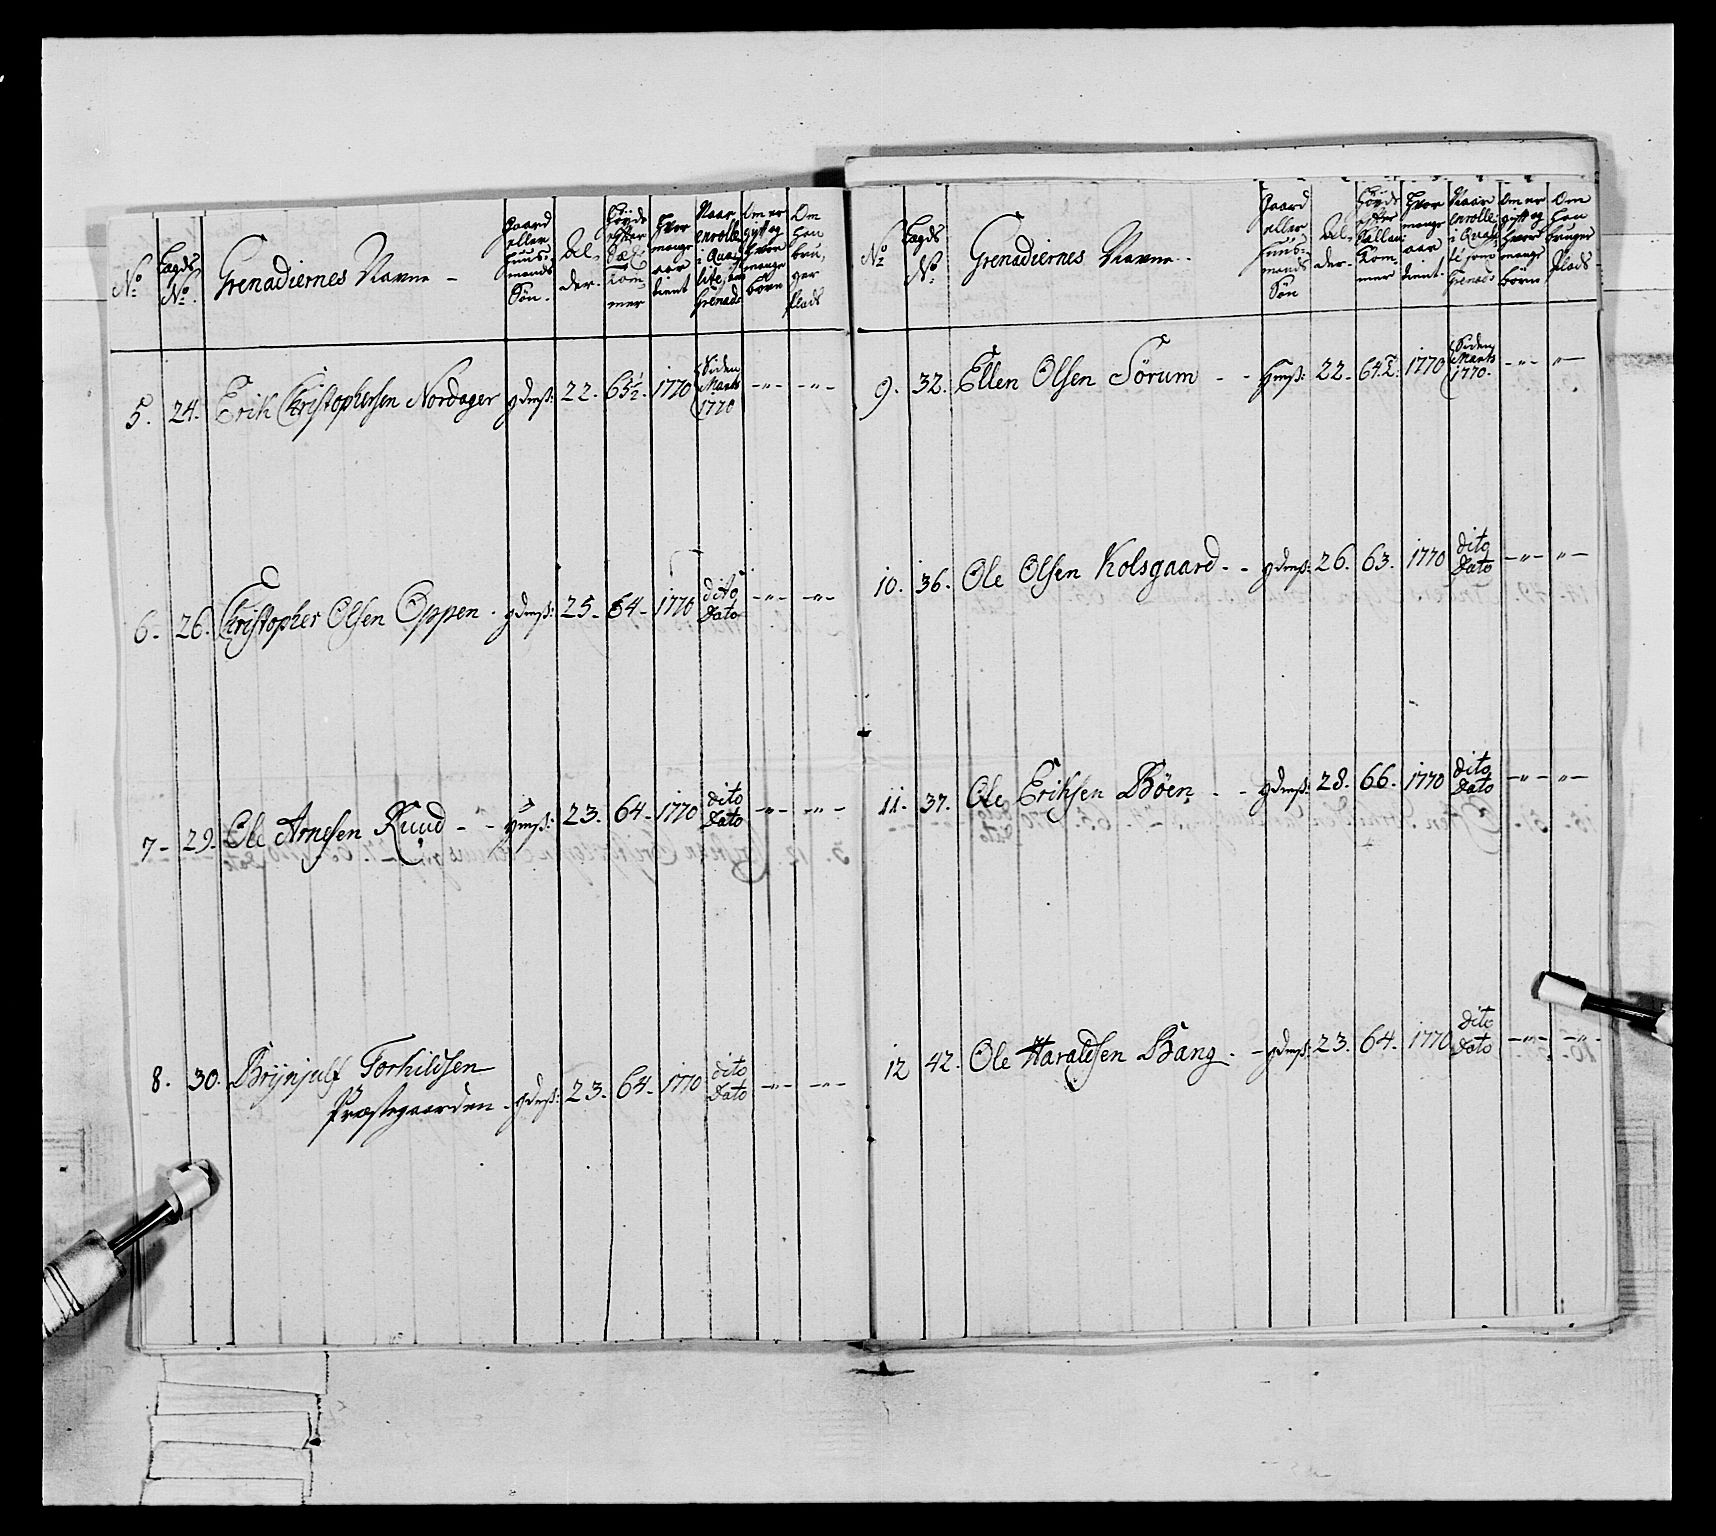 No
Lægds No
Grenadiernes Navne -
Gaard eller Huus-mands Søn.
Al-der.
Høyde efter Sæl. Tom-mer
Hvor mange aar tient
Naar enrolle. i Qua-lite som Grenad:
Om er gift og hvor mange børn
Om han bru-ger Plads
5. 24. Erik Christophersen Nordager gdmß: 22. 65½. 1770 Siden Marts 1770 -"- -"-
6- 26. Christopher Olsen Oppen. gdmß: 25- 64- 1770 dito Dato -"- -"-
7- 29. Ole Arnesen Ruud - - hmß: 23. 64- 1770 dito Dato -"- -"-
8. 30. Brijnjulf Torhildsen
Præstegaarden - gdmß: 23. 64- 1770 dito Dato -"- -"-
No
Lægds No
Grenadiernes Navne -
Gaard eller Huus-mands Søn
Al-der-
Høyde efter Tom-mer
Hvor mange aar tient
Naar enrolle. i Qua-lite som Grenad:
Om er gift og hvor mange børn
Om han bruger Plads -
9. 32. Ellen Olsen Sörum - - hmß: 22- 64½. 1770 Siden Marts 1770. -"- "-
10. 36. Ole Olsen Kolsgaard - - gdmß: 26. 63. 1770 dito Dato -"- "-
11. 37. Ole Eriksen Böen - - gdmß: 28. 66. 1770 dito Dato -"- "-
12 42. Ole Haraldsen Bang - - gdmß: 23. 64- 1770 dito Dato -"- -"-